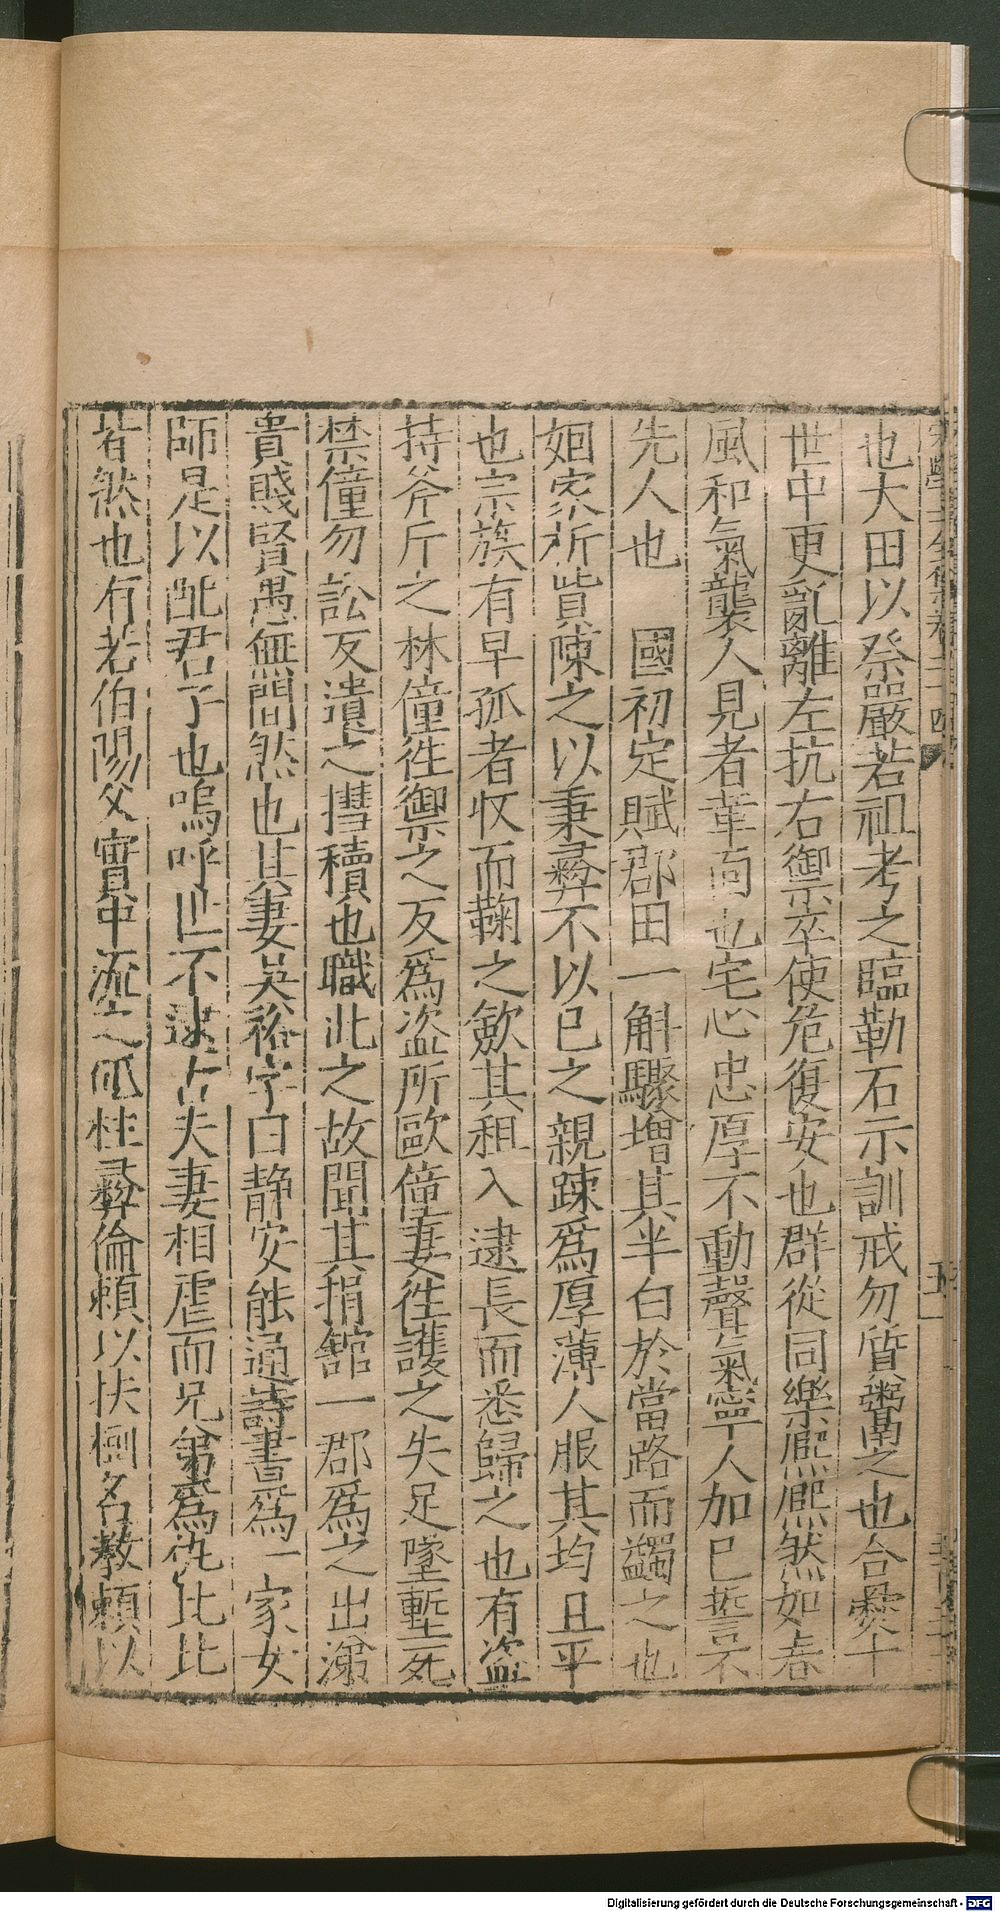 也大田以祭嚴若祖考之臨勒石示訓戒勿質鬻之也合爨十
世中更亂離左抗右禦卒使危復安也群從同樂熈熈然如春
風和氣襲人見者革面也宅心忠厚不動聲氣寧人加已誓不
先人也　國初定賦郡田一斛驟增其半白於當路而蠲之也
姻家析貲陳之以秉彝不以已之親踈爲厚薄人服其均且平
也宗族有早孤者收而鞠之斂其租入逮長而悉歸之也有盜
持斧斤之林僮徃禦之反爲盜所歐僮妻徃護之失足墜塹死
禁僮勿訟反遺之槥櫝也職此之故聞其捐舘一郡爲之出涕
貴賤賢愚無間然也其妻吳裕字曰静安能通詩書爲一家女
師是以配君子也嗚呼世不逮古夫妻相虐而兄弟爲仇比比
皆然也有若伯陽父實中流之砥柱彞倫頼以扶樹名教頼以
五
Digitalisierung gefördert durch die Deutsche Forschungsgemeinschaft - DFG